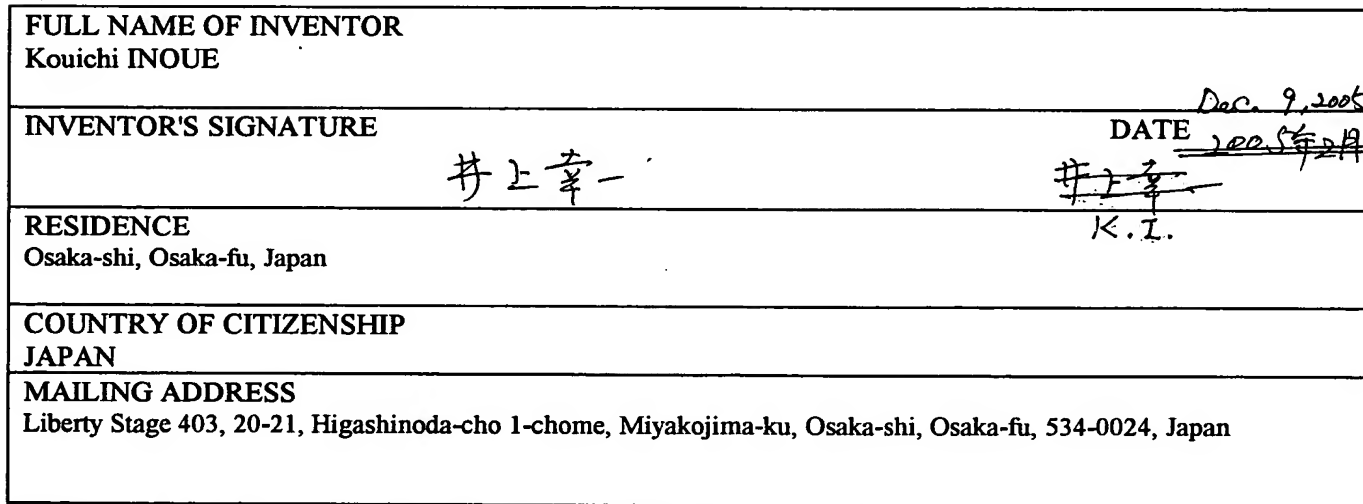 FULL NAME OF INVENTOR
Kouichi INOUE
Dec. 9, 2005
INVENTOR'S SIGNATURE
DATE 2005年
井上幸一
井上幸一
K.I.
RESIDENCE
Osaka-shi, Osaka-fu, Japan
COUNTRY OF CITIZENSHIP
JAPAN
MAILING ADDRESS
Liberty Stage 403, 20-21, Higashinoda-cho 1-chome, Miyakojima-ku, Osaka-shi, Osaka-fu, 534-0024, Japan